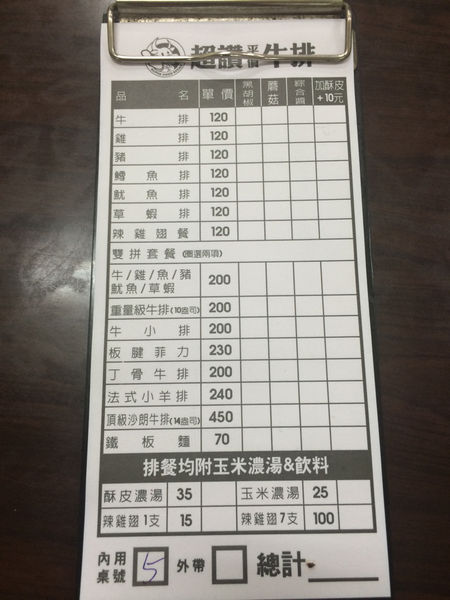 超讚平價牛排
品名 單價 黑胡椒 蘑菇 綜合醬 加酥皮+10元
牛排 120
雞排 120
豬排 120
鱈魚排 120
魷魚排 120
草蝦排 120
辣雞翅餐 120
雙拼套餐(任選兩項)
牛/雞/魚/豬
魷魚/草蝦 200
重量級牛排(10盎司) 200
牛小排 200
板腱菲力 230
丁骨牛排 200
法式小羊排 240
頂級沙朗牛排(14盎司) 450
鐵板麵 70
排餐均附玉米濃湯&飲料
酥皮濃湯 35 玉米濃湯 25
辣雞翅1支 15 辣雞翅7支 100
內用桌號 5 外帶 總計